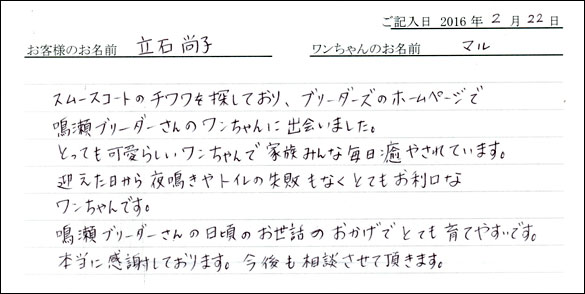 ご記入日 2016 年 2 月 22 日
お客様のお名前 立石 尚子 ワンちゃんのお名前 マル
スムースコートのチワワを探しており、ブリーダーズのホームページで
鳴瀬ブリーダーさんのワンちゃんに出会いました。
とっても可愛らしいワンちゃんで家族みんな毎日癒やされています。
迎えた日から夜鳴きやトイレの失敗もなくとてもお利口な
ワンちゃんです。
鳴瀬ブリーダーさんの日頃のお世話のおかげでとても育てやすいです。
本当に感謝しております。今後も相談させて頂きます。